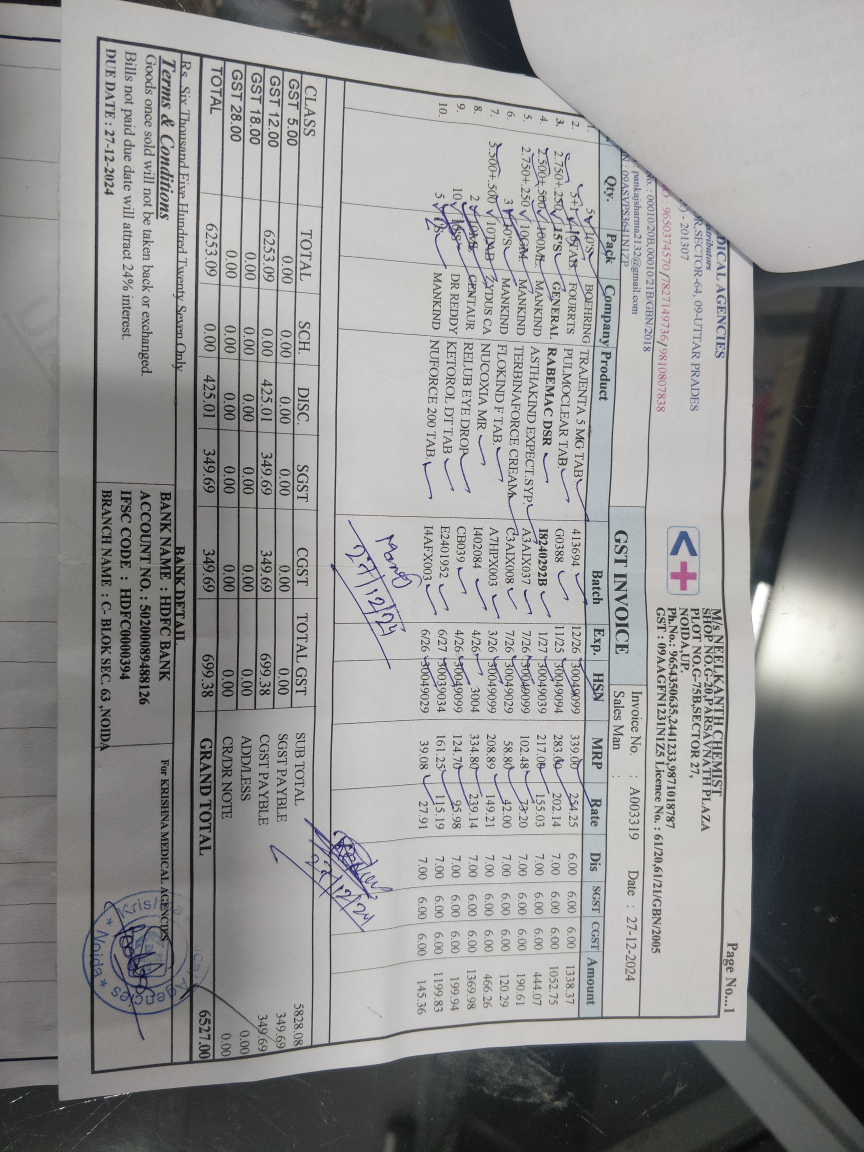 Page No...1
DICAL AGENCIES
stributors
R,SECTOR-64, 09-UTTAR PRADES
- 201307
: 9650374570 /7827149736/9810807838
No. : 00010/20B,00010/21B/GBN/2018
: pankajsharma2132@gmail.com
N : 09ASYPS3641N1ZP
M/s NEELKANTH CHEMIST
SHOP NO.G-20,PARSAVNATH PLAZA
PLOT NO.G-75B,SECTOR 27,
NOIDA,UP
Ph.No.: 9654350635,2441233,9871018787
GST : 09AAGFN1231N1Z5 Licence No. : 61/20,61/21/GBN/2005
GST INVOICE
Invoice No. : A003319 Date : 27-12-2024
Sales Man :
Qty. Pack Company Product Batch Exp. HSN MRP Rate Dis SGST CGST Amount
1. 5 10'S BOEHRING TRAJENTA 5 MG TAB 413694 12/26 30049099 339.00 254.25 6.00 6.00 6.00 1338.37
2. 5+1 10TAB FOURRTS PULMOCLEAR TAB G0388 11/25 30049094 283.00 202.14 7.00 6.00 6.00 1052.75
3. 2.750+.250 15'S GENERAL RABEMAC DSR I8240292B 1/27 30049039 217.00 155.03 7.00 6.00 6.00 444.07
4. 2.500+.500 100ML MANKIND ASTHAKIND EXPECT.SYP A3AIX037 7/26 30049099 102.48 73.20 7.00 6.00 6.00 190.61
5. 2.750+.250 10GM. MANKIND TERBINAFORCE CREAM C3AIX008 7/26 30049029 58.80 42.00 7.00 6.00 6.00 120.29
6. 3 10'S MANKIND FLOKIND F TAB A7HPX003 3/26 30049099 208.89 149.21 7.00 6.00 6.00 466.26
7. 3.500+.500 10TAB ZYDUS CA NUCOXIA MR I402084 4/26 3004 334.80 239.14 7.00 6.00 6.00 1369.98
8. 2 CENTAUR RELUB EYE DROP CB039 4/26 30049099 124.70 95.98 7.00 6.00 6.00 199.94
9. 10 DR REDDY KETOROL DT TAB E2401952 6/27 30039034 161.25 115.19 7.00 6.00 6.00 1199.83
10. 5 MANKIND NUFORCE 200 TAB I4AFX003 6/26 30049029 39.08 27.91 7.00 6.00 6.00 145.36
27/12/24
27/12/24
CLASS TOTAL SCH. DISC. SGST CGST TOTAL GST
GST 5.00 0.00 0.00 0.00 0.00 0.00 0.00
GST 12.00 6253.09 0.00 425.01 349.69 349.69 699.38
GST 18.00 0.00 0.00 0.00 0.00 0.00 0.00
GST 28.00 0.00 0.00 0.00 0.00 0.00 0.00
TOTAL 6253.09 0.00 425.01 349.69 349.69 699.38
SUB TOTAL 5828.08
SGST PAYBLE 349.69
CGST PAYBLE 349.69
ADD/LESS 0.00
CR/DR NOTE 0.00
GRAND TOTAL 6527.00
Rs. Six Thousand Five Hundred Twenty Seven Only
Terms & Conditions
Goods once sold will not be taken back or exchanged.
Bills not paid due date will attract 24% interest.
DUE DATE : 27-12-2024
BANK DETAIL
BANK NAME : HDFC BANK
ACCOUNT NO. : 50200089488126
IFSC CODE : HDFC0000394
BRANCH NAME : C- BLOK SEC. 63 ,NOIDA
For KRISHNA MEDICAL AGENCIES
Krishna
Agencies
* Noida *